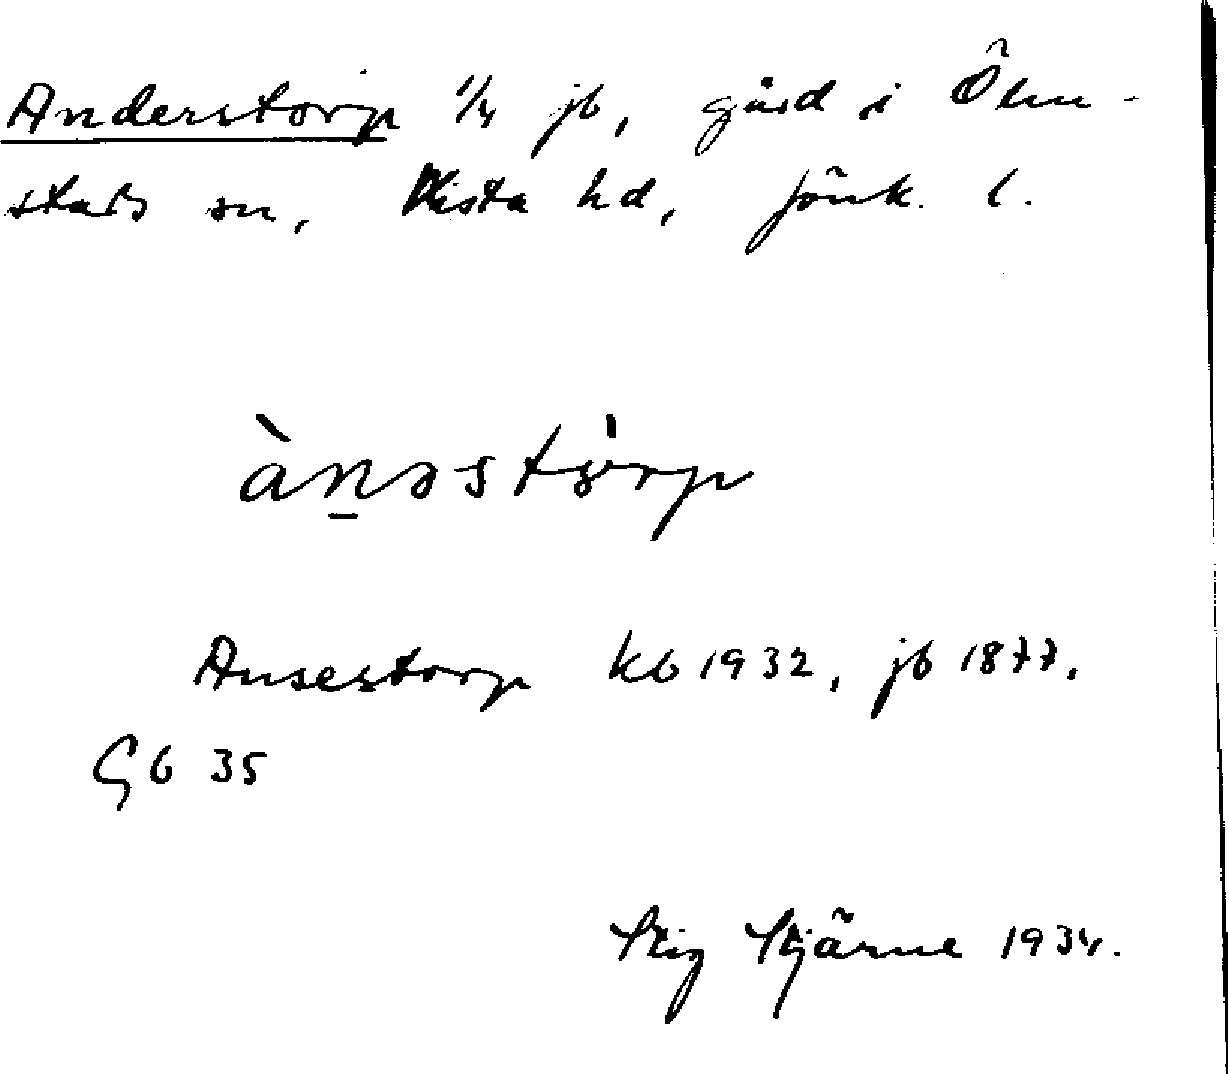 Anderstorp 1/4 jb, gård i Ölm-
stads sn, Vista hd, Jönk. l.
àn̲əstòrp
Ansestorp kb 1932, jb 1877,
Gb 35
Stig Stjärne 1934.